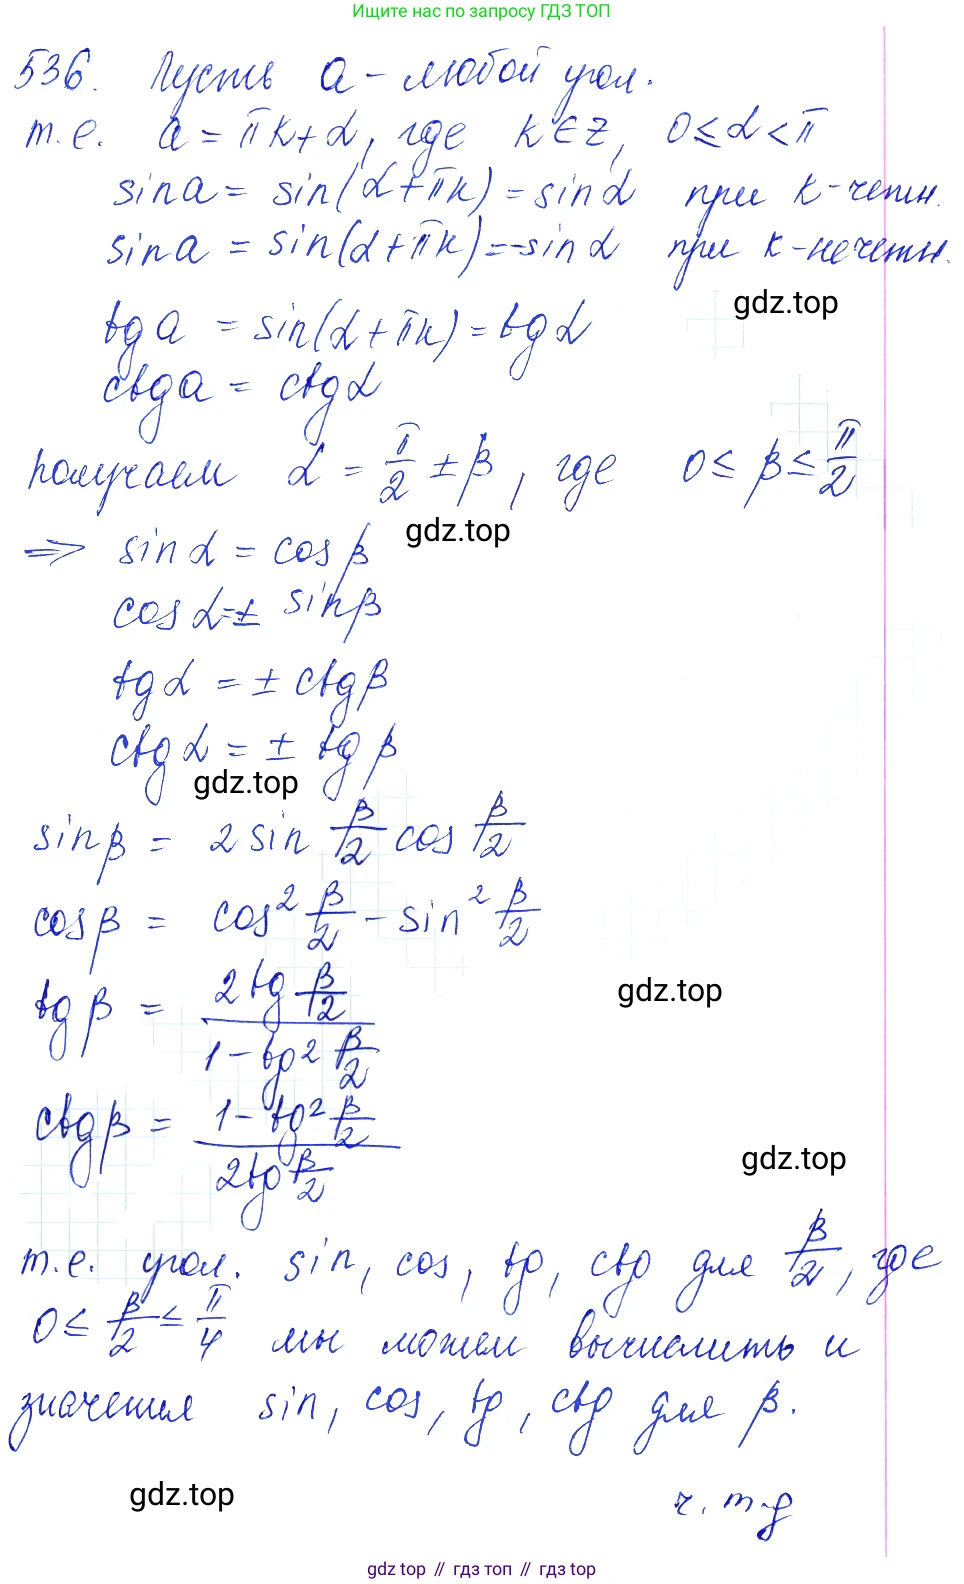 Ищите нас по запросу ГДЗ ТОП
536. Пусть a - любой угол.
т.е. a = πk + α, где k ∈ Z, 0 ≤ α < π
sin a = sin(α + πk) = sin α при k - четн.
sin a = sin(α + πk) = -sin α при k - нечетн.
gdz.top
tg a = sin(α + πk) = tg α
ctg a = ctg α
Получаем α = π/2 ± β, где 0 ≤ β ≤ π/2
gdz.top
⇒ sin α = cos β
cos α = ± sin β
tg α = ± ctg β
ctg α = ± tg β
gdz.top
sin β = 2 sin β/2 cos β/2
cos β = cos² β/2 - sin² β/2
gdz.top
tg β = (2 tg β/2)/(1 - tg² β/2)
ctg β = (1 - tg² β/2)/(2 tg β/2)
gdz.top
т.е. угол. sin, cos, tg, ctg для β/2, где
0 ≤ β/2 ≤ π/4 мы можем вычислить и
значения sin, cos, tg, ctg для β.
gdz.top
ч.т.д
gdz top // гдз топ // gdz top